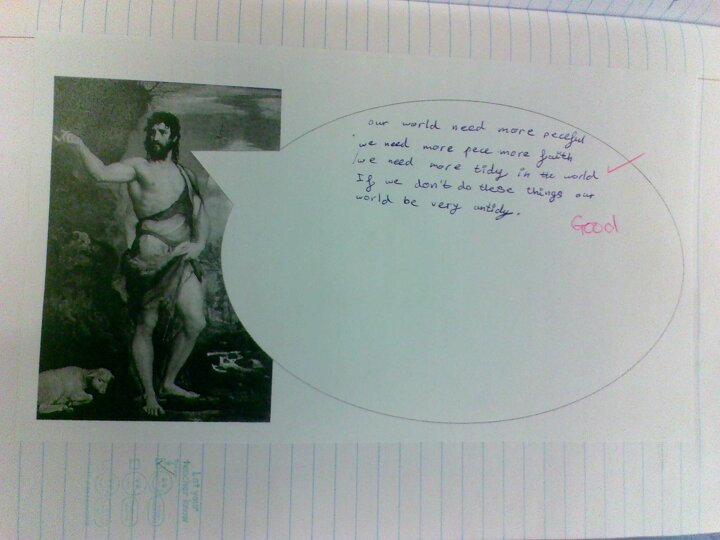 our world need more peceful
we need more pece more faith
we need more tidy in the world
If we don't do these things our
world be very untidy.
Good
Let your
teacher know